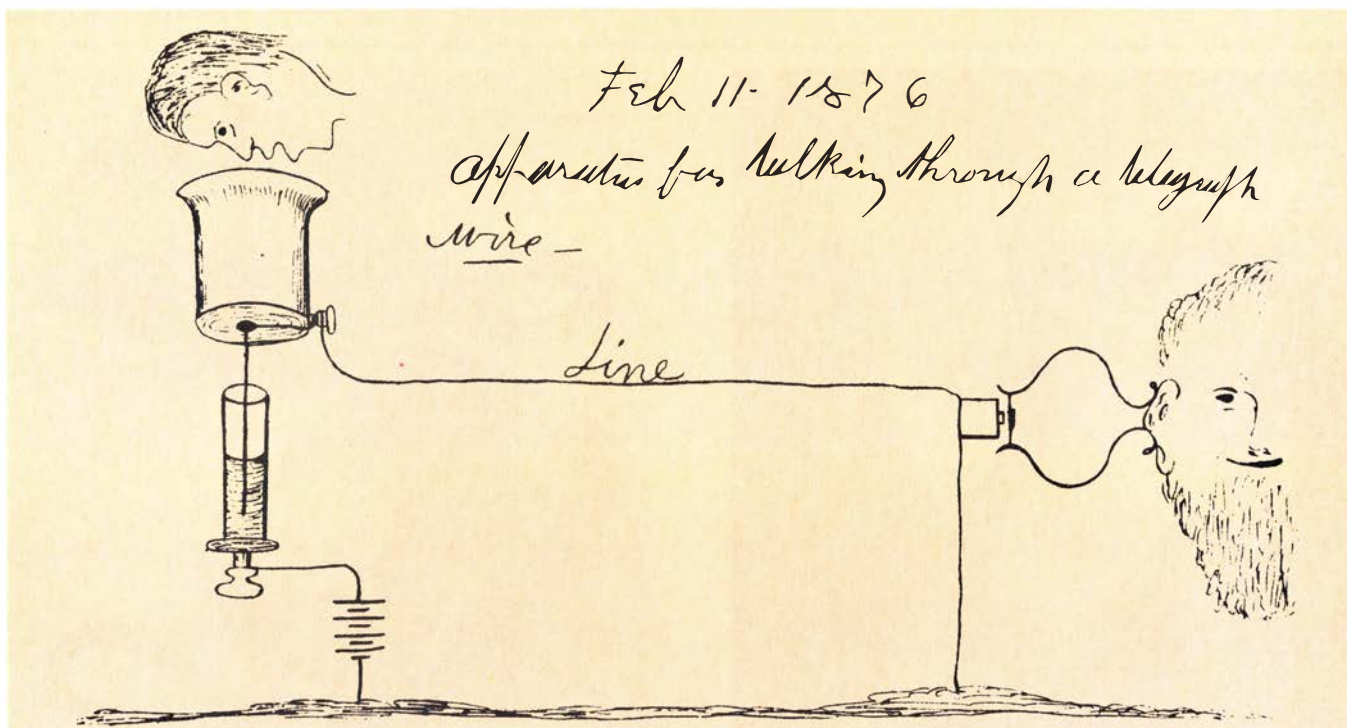 Feb 11- 1876
apparatus for talking through a telegraph
wire -
Line